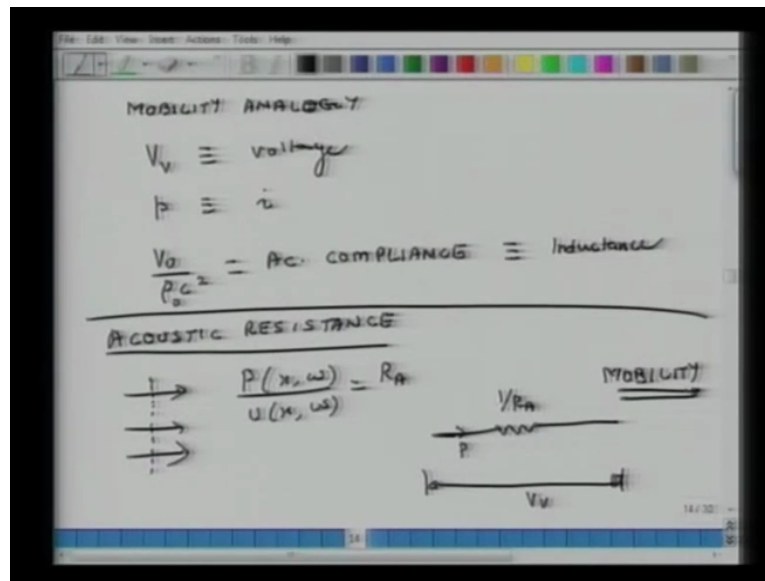 File Edit View Insert Actions Tools Help
MOBILITY ANALOGY
V_v ≡ voltage
p ≡ i
V_0 / ρ_0 c² = AC. COMPLIANCE ≡ Inductance
ACOUSTIC RESISTANCE
P(x, ω) / U(x, ω) = R_A
MOBILITY
1/R_A
P
V_v
14 / 32
14